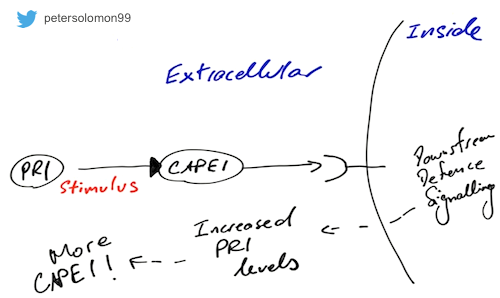 petersolomon99
Inside
Extracellular
PR1
Stimulus
CAPE1
Downstream
Defence
Signalling
Increased
PR1
levels
More
CAPE1!